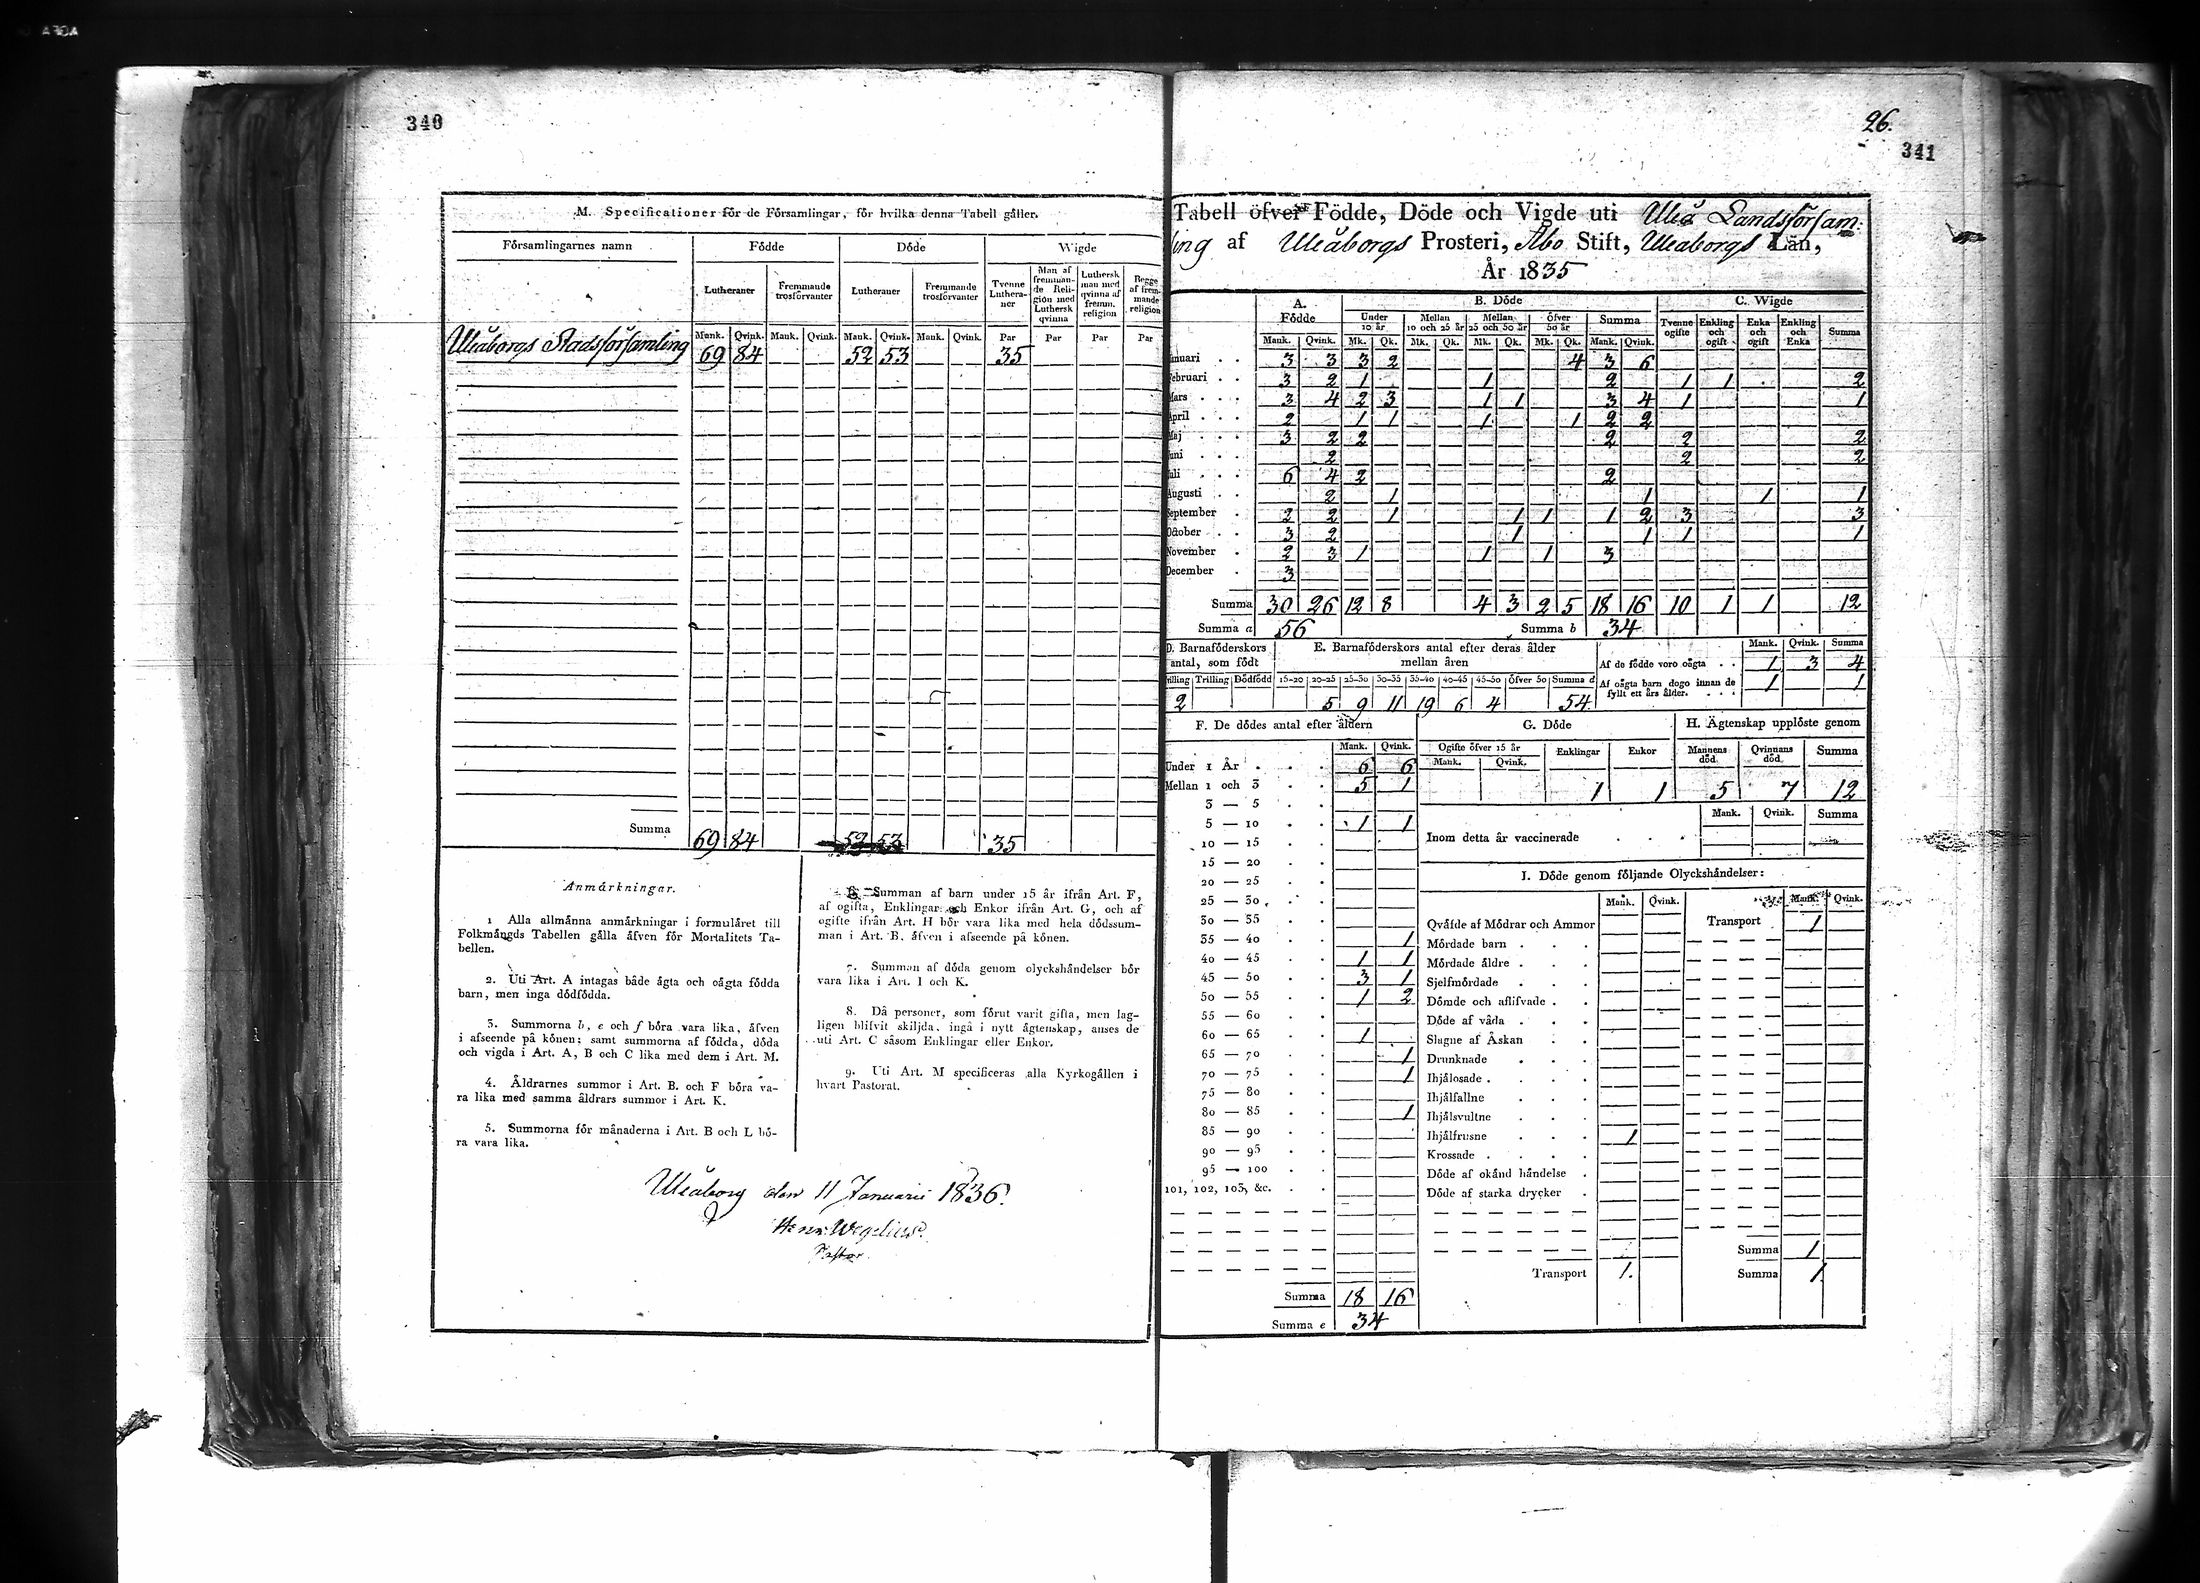 340
M. Specificationer för de Församlingar, för hvilka denna Tabell gäller.
Församlingarnes namn Födde Döde Wigde
Lutheraner Fremmande trosförvanter Lutheraner Fremmande trosförvanter Tvenne Lutheraner Man af fremmande Religion med Luthersk qvinna Luthersk man med qvinna af fremm. religion Begge af fremmande religion
Mank. Qvink. Mank. Qvink. Mank. Qvink. Mank. Qvink. Par Par Par Par
Uleåborgs Stadsförsamling 69 84 52 53 35
Summa 69 84 52 53 35
Anmärkningar.
1 Alla allmänna anmärkningar i formuläret till
Folkmängds Tabellen gälla äfven för Mortalitets Ta-
bellen.
2. Uti Art. A intagas både ägta och oägta födda
barn, men inga dödfödda.
3. Summorna b, e och f böra vara lika, äfven
i afseende på könen; samt summorna af födda, döda
och vigda i Art. A, B och C lika med dem i Art. M.
4. Åldrarnes summor i Art. B. och F böra va-
ra lika med samma åldrars summor i Art. K.
5. Summorna för månaderna i Art. B och L bö-
ra vara lika.
6. Summan af barn under 15 år ifrån Art. F,
af ogifta, Enklingar och Enkor ifrån Art. G, och af
ogifte ifrån Art. H bör vara lika med hela dödssum-
man i Art. B. äfven i afseende på könen.
7. Summan af döda genom olyckshändelser bör
vara lika i Art. I och K.
8. Då personer, som förut varit gifta, men lag-
ligen blifvit skiljda, ingå i nytt ägtenskap, anses de
uti Art. C såsom Enklingar eller Enkor.
9. Uti Art. M specificeras alla Kyrkogällen i
hvart Pastorat.
Uleåborg den 11 Januarii 1836.
Henr. Wegelius.
Pastor.
26.
341
Tabell öfver Födde, Döde och Vigde uti Uleå Landsförsam-
ling af Uleåborgs Prosteri, Åbo Stift, Uleaborgs Län,
År 1835
A. Födde B. Döde C. Wigde
Under 10 år Mellan 10 och 25 år Mellan 25 och 50 år Öfver 50 år Summa Tvenne ogifte Enkling och ogift Enka och ogift Enkling och Enka Summa
Mank. Qvink. Mk. Qk. Mk. Qk. Mk. Qk. Mk. Qk. Mank. Qvink.
Januari 3 3 3 2 4 3 6
Februari 3 2 1 1 2 1 1 2
Mars 3 4 2 3 1 1 3 4 1 1
April 2 1 1 1 1 2 2
Maj 3 2 2 2 2 2
Juni 2 2 2
Juli 6 4 2 2
Augusti 2 1 1 1 1
September 2 2 1 1 1 1 2 3 3
October 3 2 1 1 1 1
November 2 3 1 1 1 3
December 3
Summa 30 26 12 8 4 3 2 5 18 16 10 1 1 12
Summa a 56 Summa b 34
D. Barnaföderskors antal, som födt
Tvilling Trilling Dödfödd
2
E. Barnaföderskors antal efter deras ålder mellan åren
15-20 20-25 25-30 30-35 35-40 40-45 45-50 öfver 50 Summa d
5 9 11 19 6 4 54
Mank. Qvink. Summa
Af de födde voro oägta 1 3 4
Af oägta barn dogo innan de fyllt ett års ålder. 1 1
F. De dödes antal efter åldern
Mank. Qvink.
Under 1 År 6 6
Mellan 1 och 3 5 1
3 — 5
5 — 10 1 1
10 — 15
15 — 20
20 — 25
25 — 30
30 — 35
35 — 40 1
40 — 45 1 1
45 — 50 3 1
50 — 55 1 2
55 — 60
60 — 65 1
65 — 70 1
70 — 75 1
75 — 80
80 — 85 1
85 — 90
90 — 95
95 — 100
101, 102, 103, &c.
Summa 18 16
Summa e 34
G. Döde
Ogifte öfver 15 år Enklingar Enkor
Mank. Qvink.
1 1
H. Ägtenskap upplöste genom
Mannens död Qvinnans död Summa
5 7 12
Mank. Qvink. Summa
Inom detta år vaccinerade
I. Döde genom följande Olyckshändelser:
Mank. Qvink. Mank. Qvink.
Qväfde af Mödrar och Ammor Transport 1
Mördade barn
Mördade äldre
Sjelfmördade
Dömde och aflifvade
Döde af våda
Slagne af Åskan
Drunknade
Ihjälosade
Ihjälfallne
Ihjälsvultne
Ihjälfrusne 1
Krossade
Döde af okänd händelse
Döde af starka drycker
Summa 1
Transport 1. Summa 1